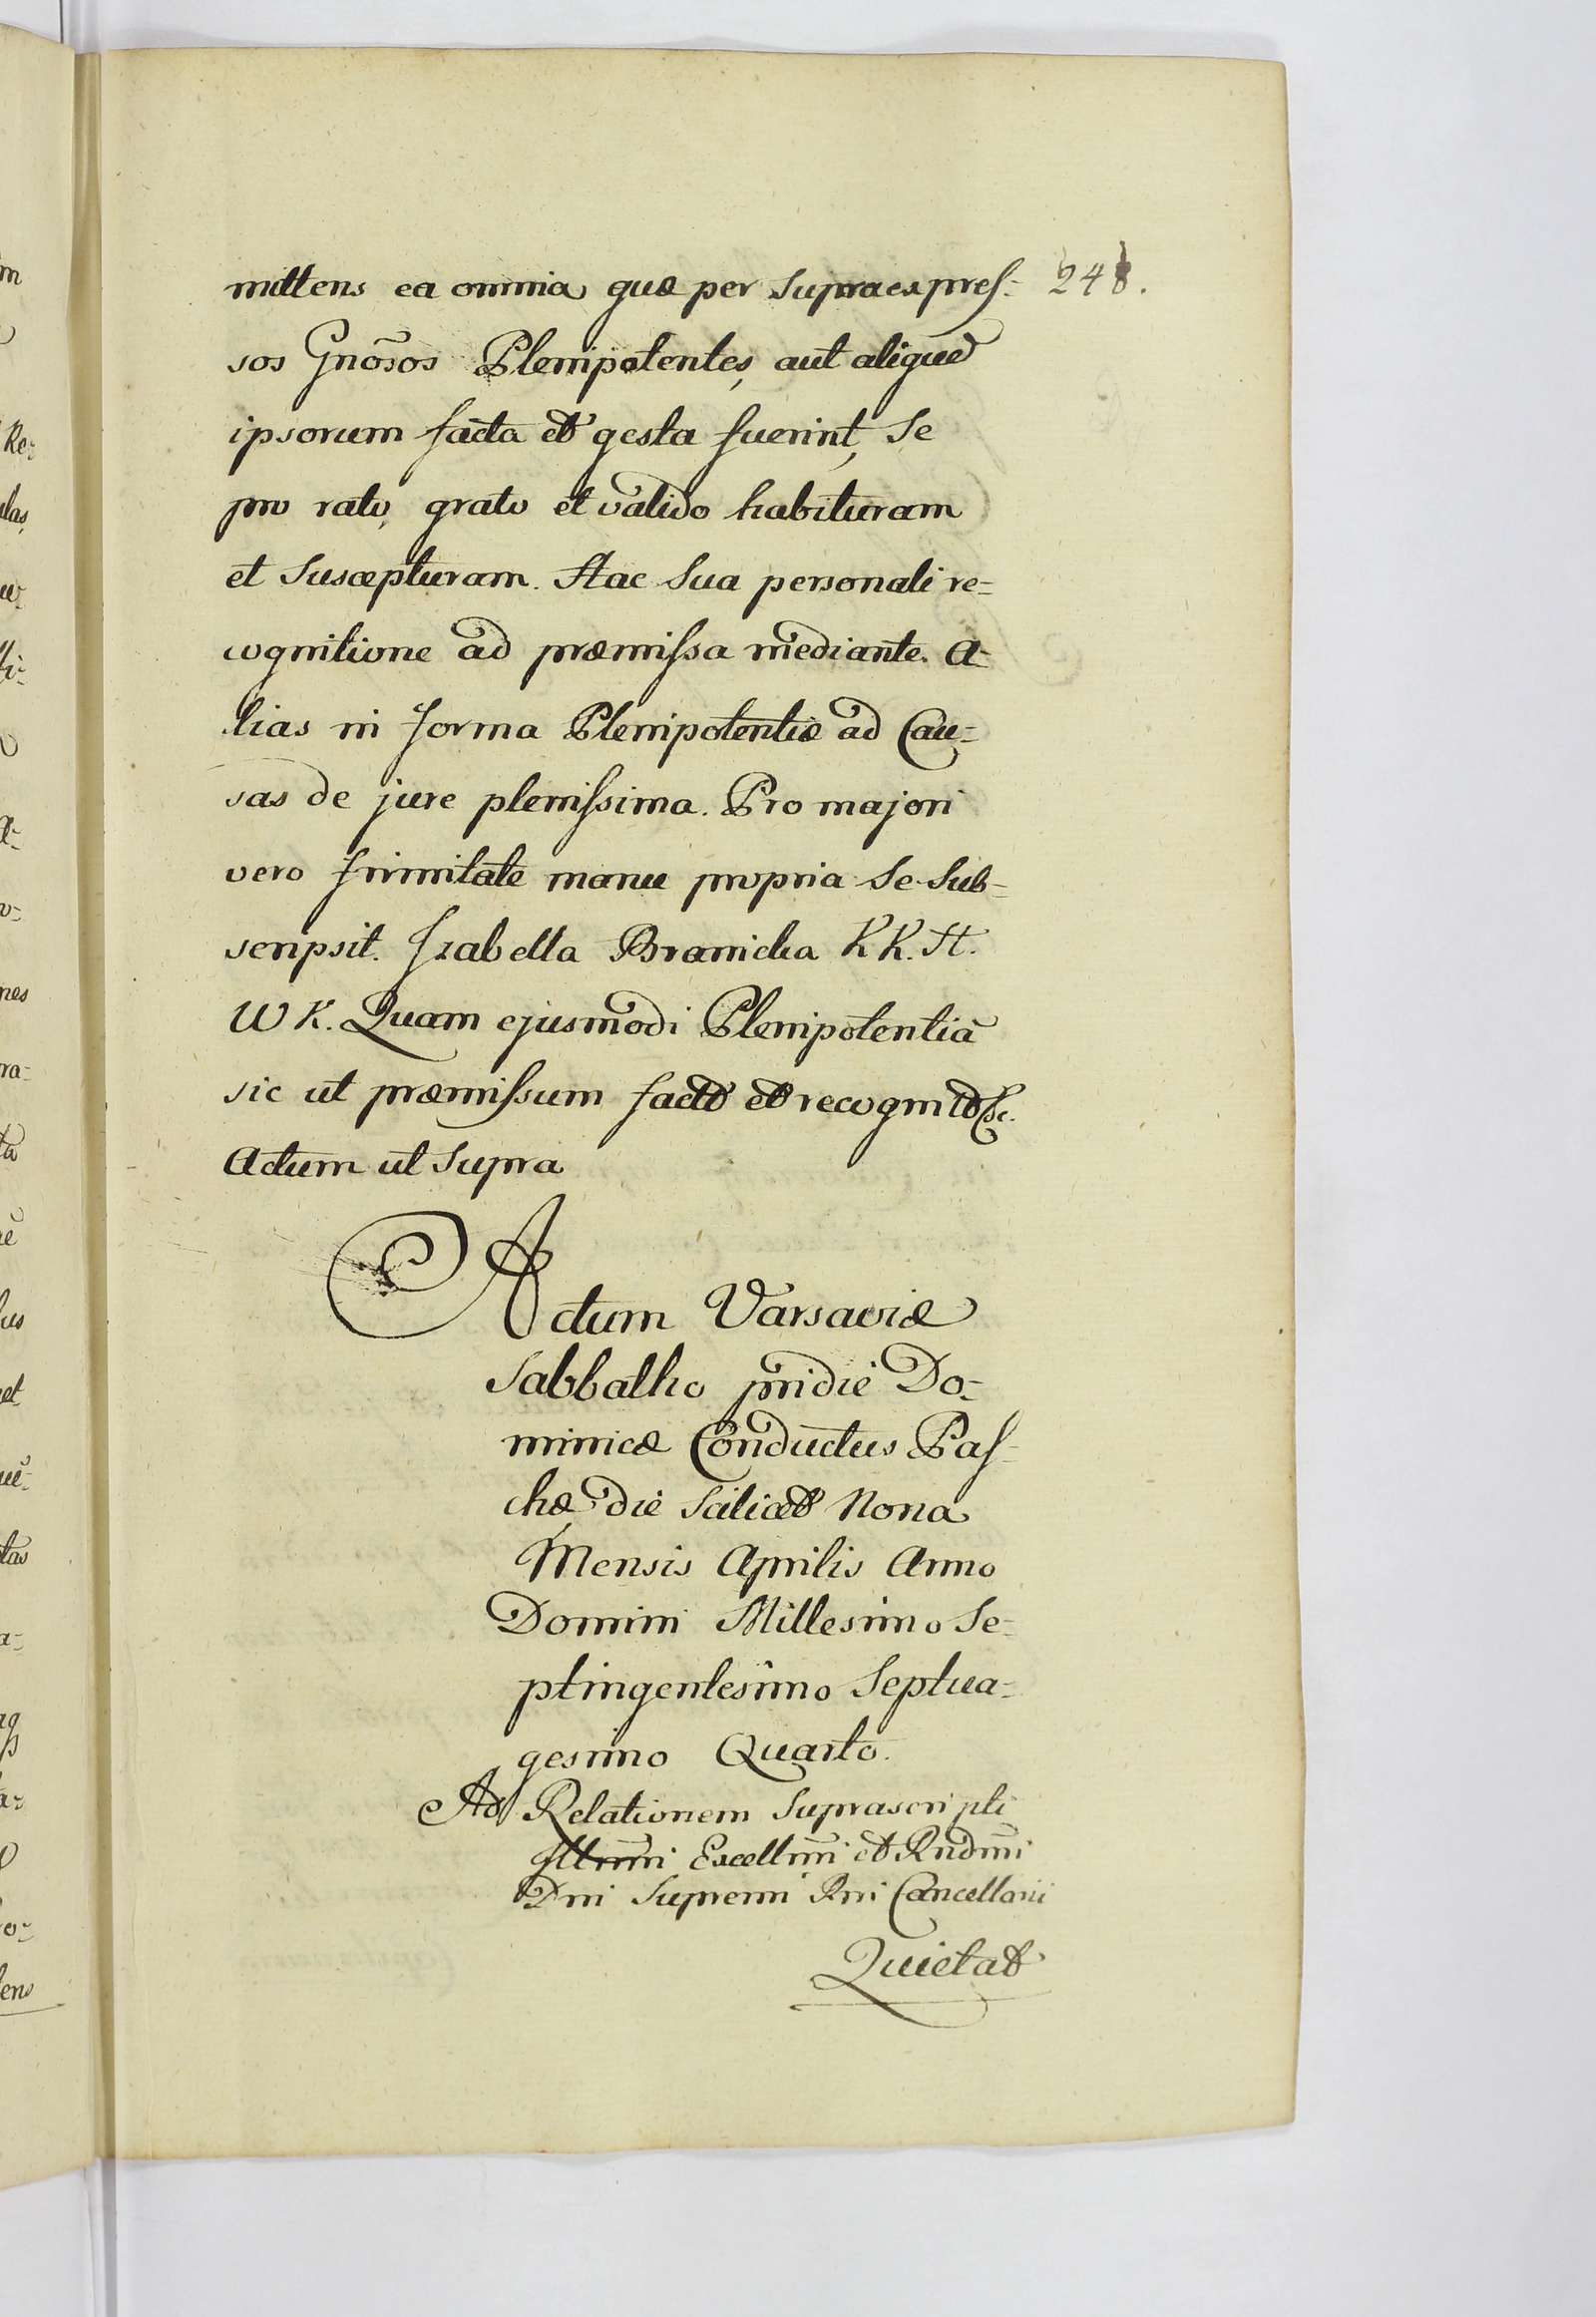 mittens ea omnia quæ per supraexpres= 248.
sos Gnõsos Plenipotentes, aut aliquẽ
ipsorum facta et gesta fuerint, se
pro rato, grato et valido habituram
et suscepturam. Hac sua personali re=
cognitione ad præmissa mediante. A=
lias in forma Plenipotentiæ ad Cau=
sas de jure plenissima. Pro majori
vero firmitate manu propria se sub=
scripsit. Izabella Branicka K K. H.
W K. Quam ejusmodi Plenipotentiã
sic ut præmissum factã et recognitã &c.
Actum ut supra
Actum Varsaviæ
Sabbatho pridie Do=
minicæ Conductus Pas=
chæ, die scilicet Nona
Mensis Aprilis Anno
Domini Millesimo Se=
ptingentesimo Septua=
gesimo Quarto.
Ad Relationem suprascripti
Illrmi Excellmi et Rndmi
Dni Supremi Rni Cancellarii
Quietat